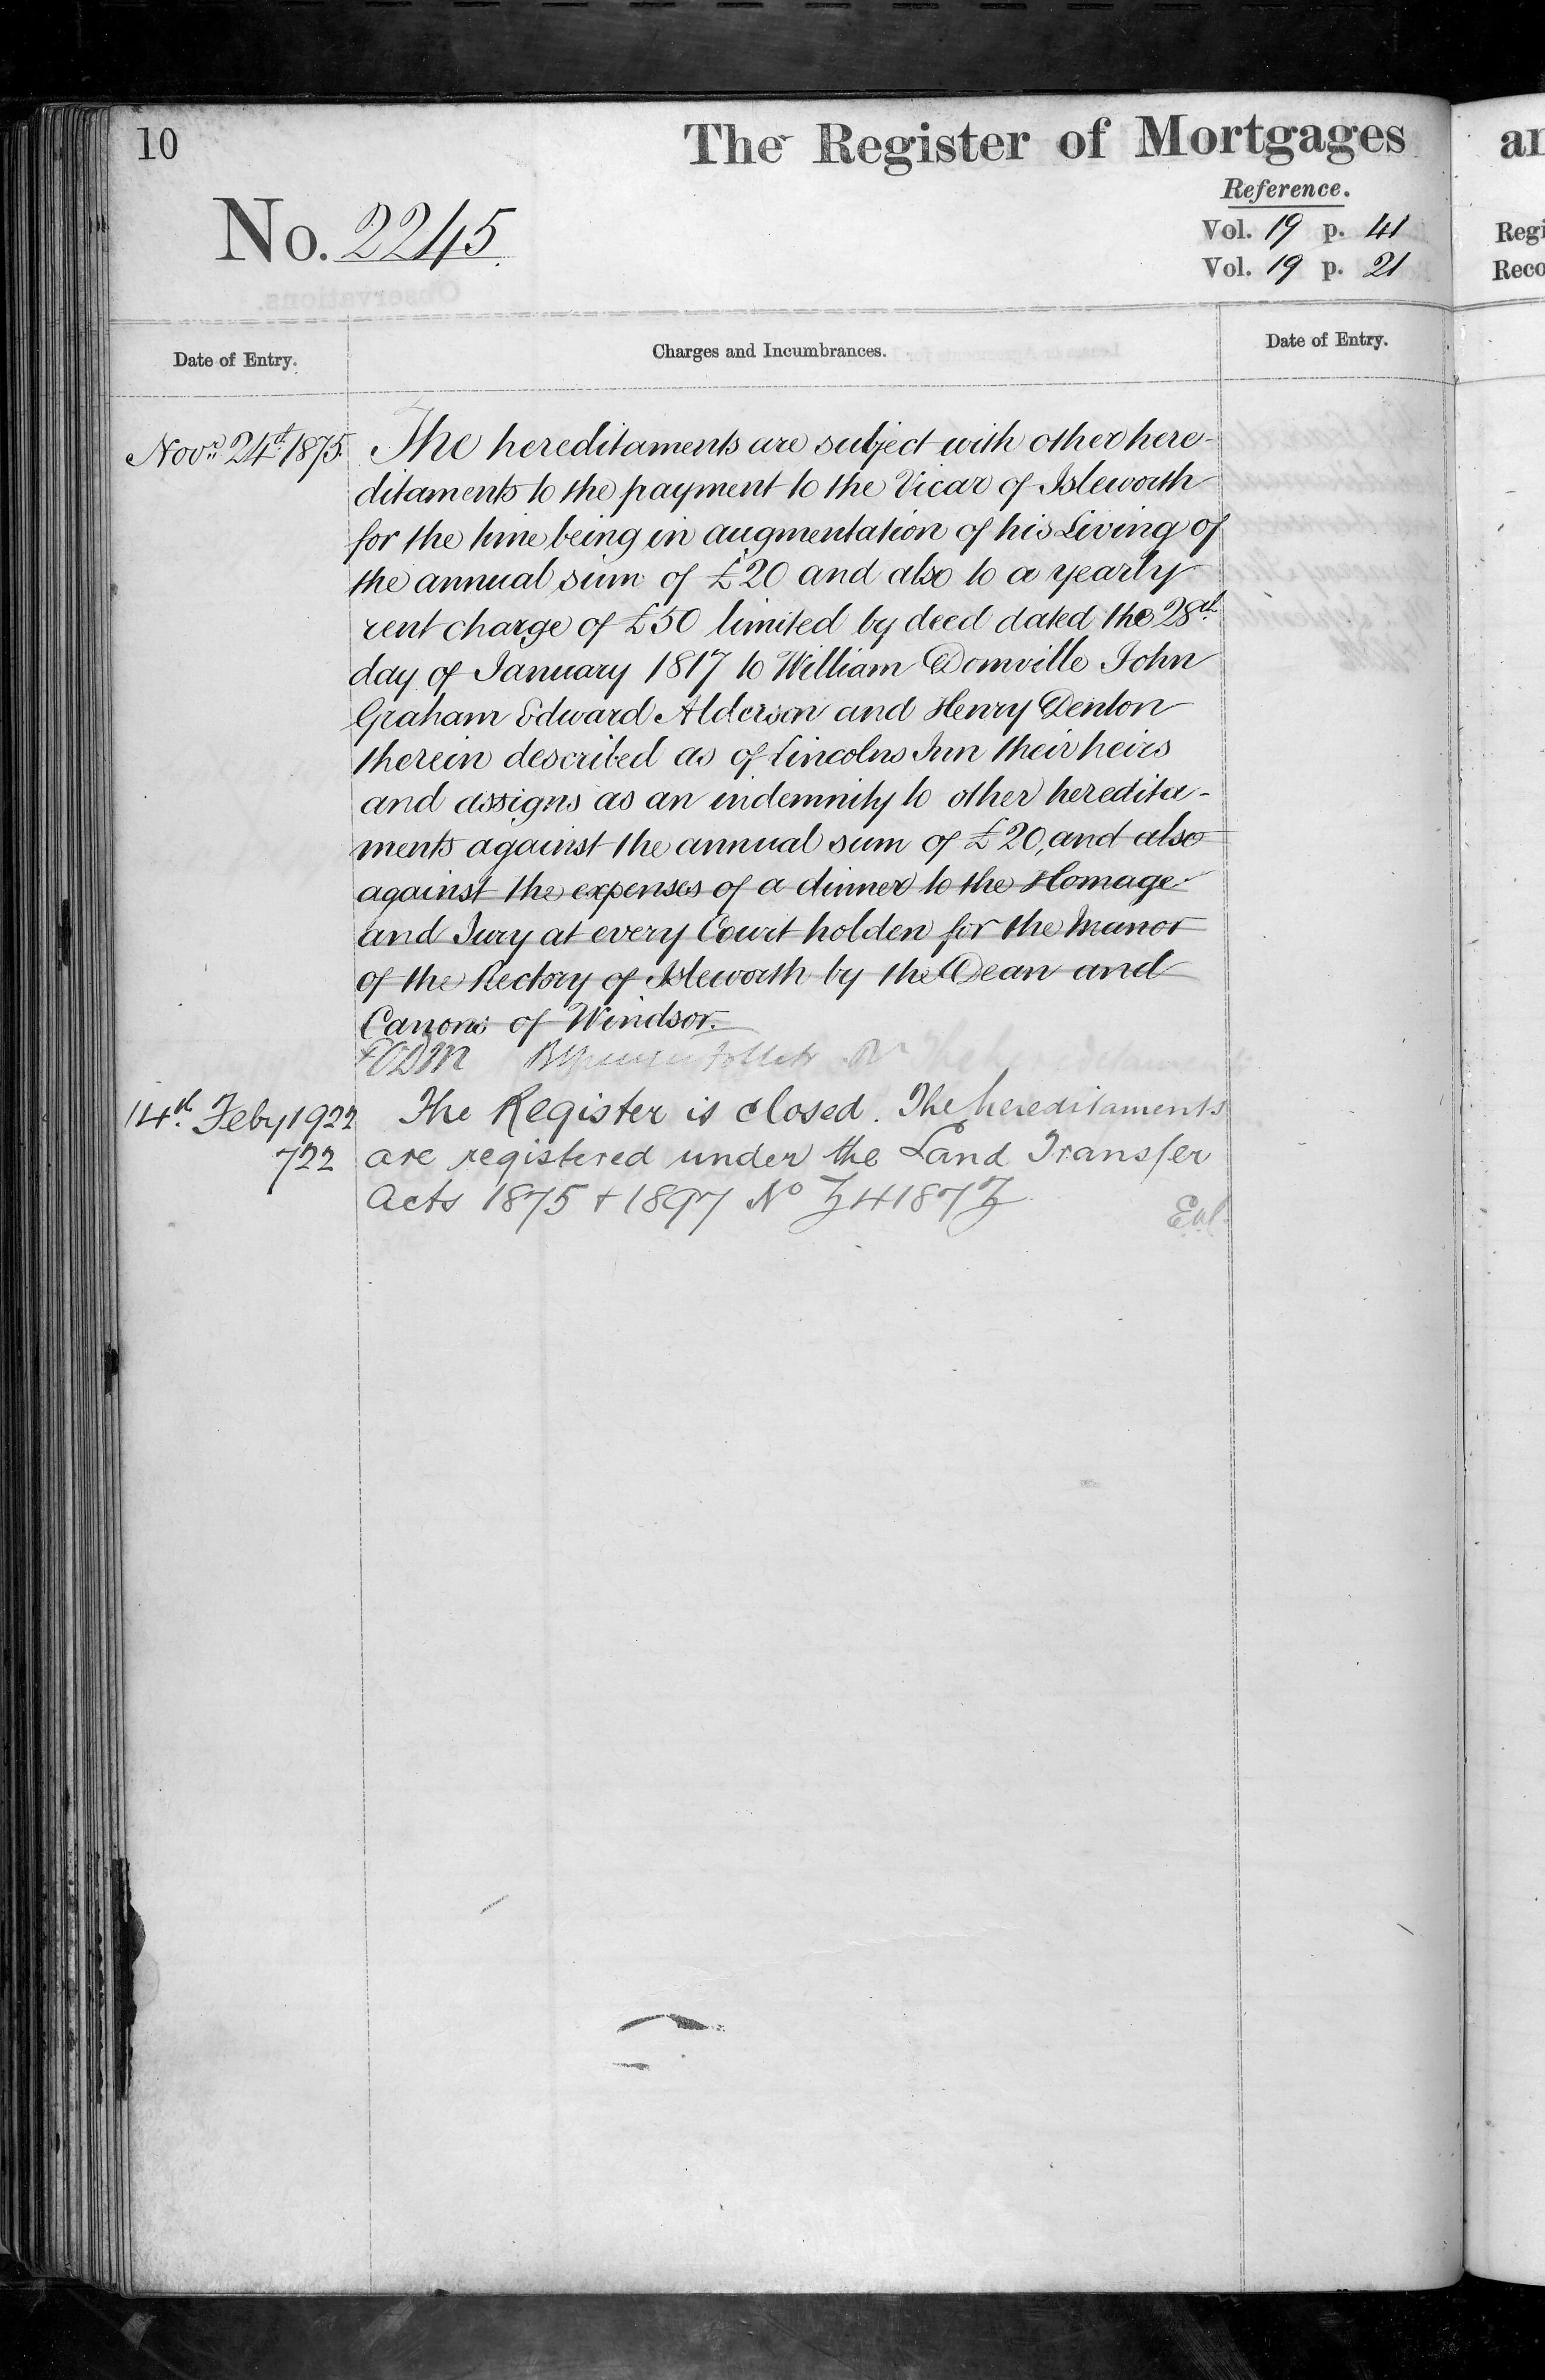 10
The Register of Mortgages
Reference.
No. 2245.
Vol. 19 p. 41
Vol. 19 p. 21
Date of Entry.
Charges and Incumbrances.
Date of Entry.
Novr. 24th. 1875. The hereditaments are subject with other here-
ditaments to the payment to the Vicar of Isleworth
for the time being in augmentation of his Living of
the annual sum of £20 and also to a yearly
rent charge of £50 limited by deed dated the 28th.
day of January 1817 to William Domville John
Graham Edward Alderson and Henry Denton
therein described as of Lincolns Inn their heirs
and assigns as an indemnity to other heredita-
ments against the annual sum of £20, and also
against the expenses of a dinner to the Homage
and Jury at every Court holden for the Manor
of the Rectory of Isleworth by the Dean and
Canons of Windsor.
14th. Feby 1922 The Register is closed. The hereditaments
722 are registered under the Land Transfer
Acts 1875 + 1897 No
ar
Regi
Reco